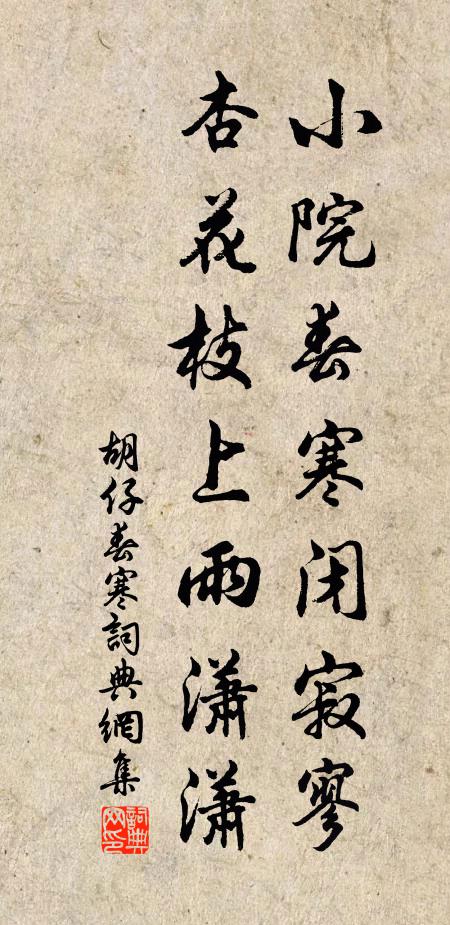 小院春寒閉寂寥
杏花枝上雨瀟瀟
胡仔春寒詞典網集
詞典網印